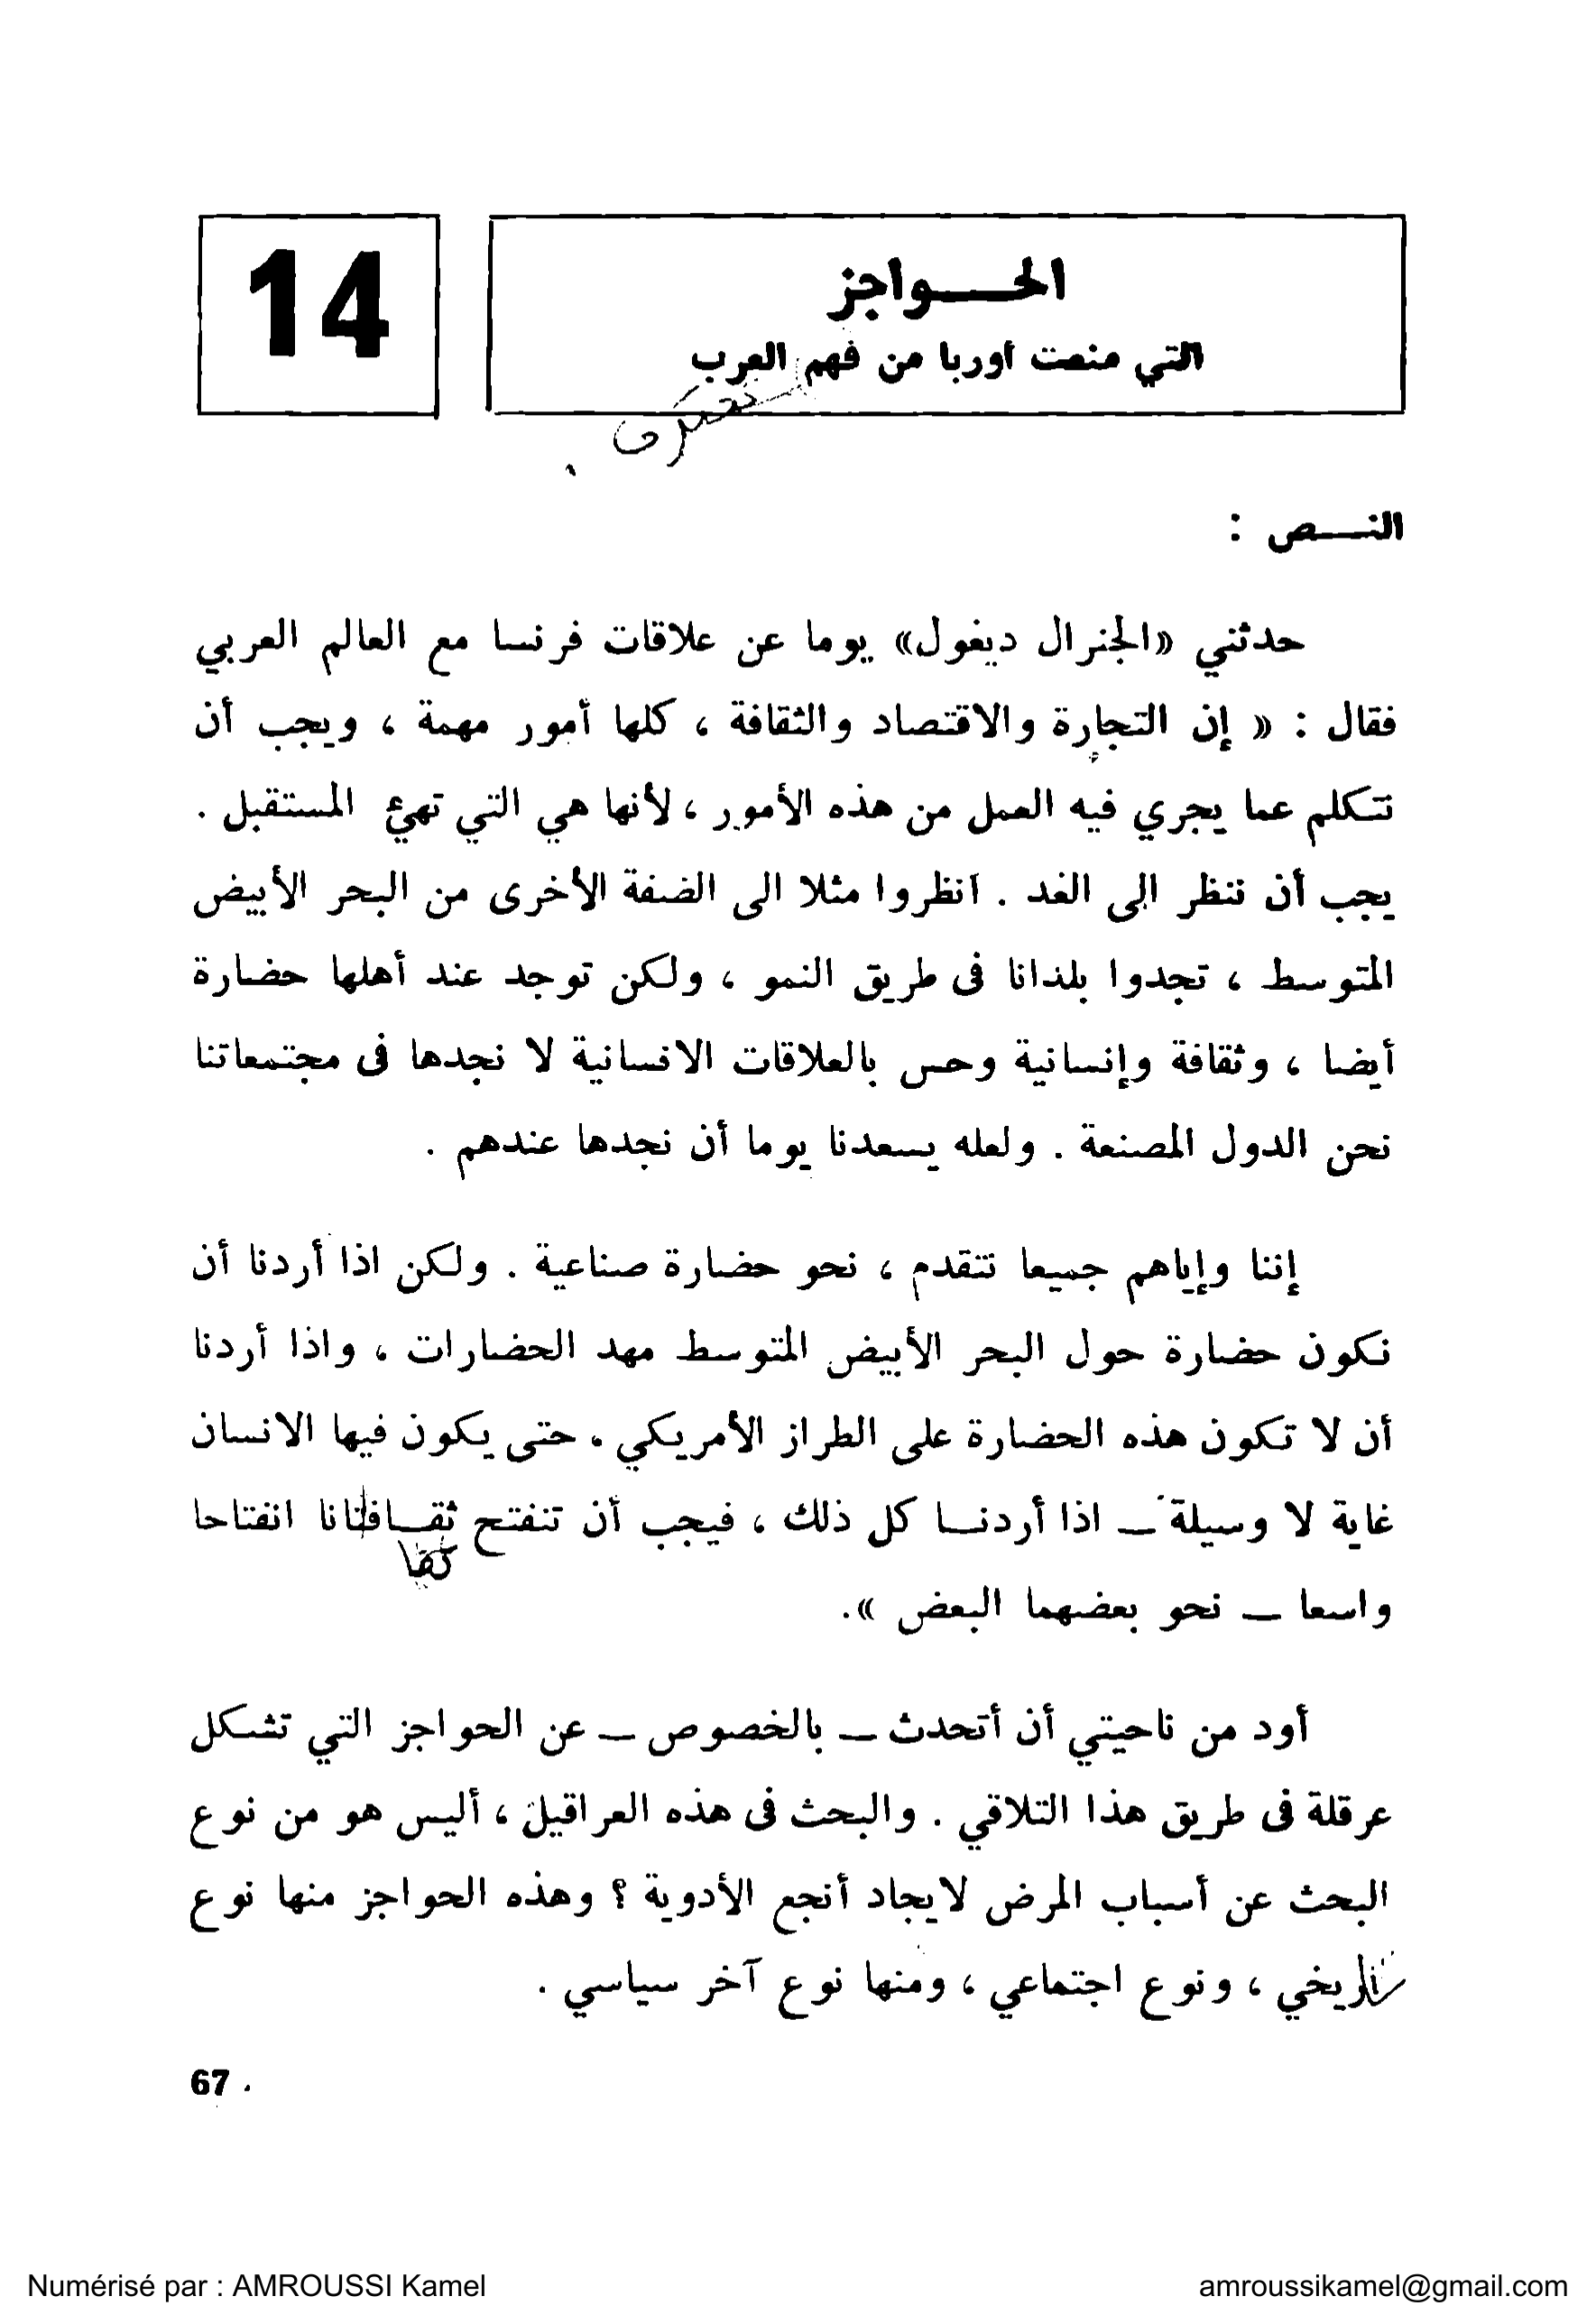 14
الحـــواجز
التي منعت أوربا من فهم العرب
النـــص :
حدثني «الجنرال ديغول» يوما عن علاقات فرنسا مع العالم العربي
فقال : « إن التجارة والاقتصاد والثقافة ، كلها أمور مهمة ، ويجب أن
نتكلم عما يجري فيه العمل من هذه الأمور ، لأنها هي التي تهيئ المستقبل .
يجب أن ننظر الى الغد . انظروا مثلا الى الضفة الأخرى من البحر الأبيض
المتوسط ، تجدوا بلدانا في طريق النمو ، ولكن توجد عند أهلها حضارة
أيضا ، وثقافة وإنسانية وحس بالعلاقات الانسانية لا نجدها في مجتمعاتنا
نحن الدول المصنعة . ولعله يسعدنا يوما أن نجدها عندهم .
إننا وإياهم جميعا نتقدم ، نحو حضارة صناعية . ولكن اذا أردنا أن
نكون حضارة حول البحر الأبيض المتوسط مهد الحضارات ، واذا أردنا
أن لا تكون هذه الحضارة على الطراز الأمريكي . حتى يكون فيها الانسان
غاية لا وسيلة — اذا أردنـا كل ذلك ، فيجب أن تنفتح ثقـافتانا انفتاحا
ثقا
واسعا — نحو بعضهما البعض ».
أود من ناحيتي أن أتحدث — بالخصوص — عن الحواجز التي تشكل
عرقلة في طريق هذا التلاقي . والبحث في هذه العراقيل ، أليس هو من نوع
البحث عن أسباب المرض لايجاد أنجع الأدوية ؟ وهذه الحواجز منها نوع
تاريخي ، ونوع اجتماعي ، ومنها نوع آخر سياسي .
67
Numérisé par : AMROUSSI Kamel
amroussikamel@gmail.com